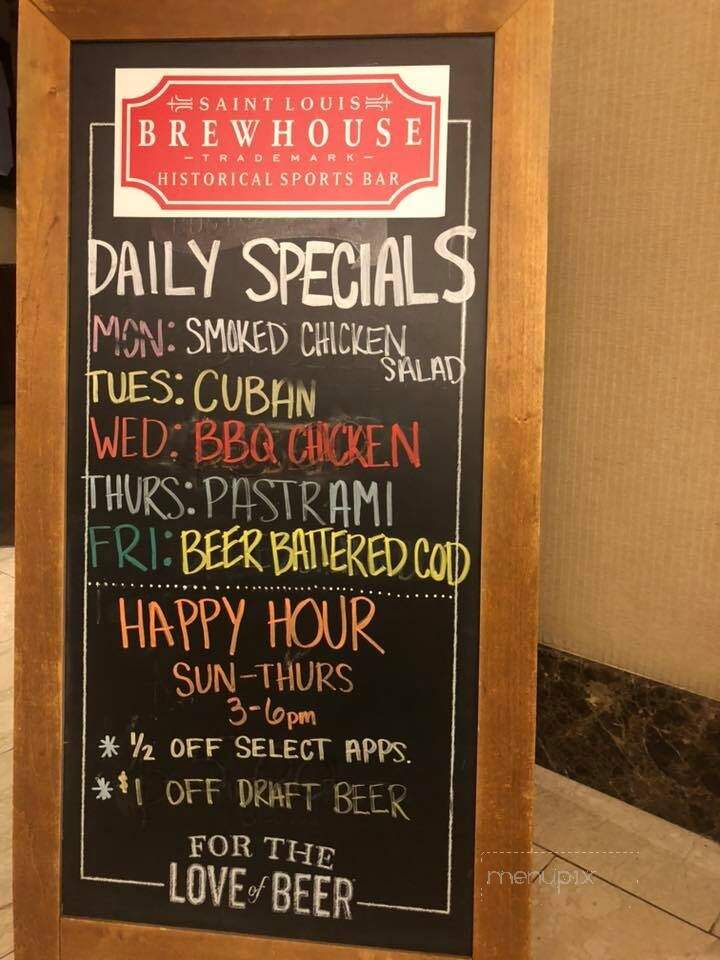 SAINT LOUIS
BREWHOUSE
TRADEMARK
HISTORICAL SPORTS BAR
DAILY SPECIALS
MON: SMOKED CHICKEN
SALAD
TUES: CUBAN
WED: BBQ CHICKEN
THURS: PASTRAMI
FRI: BEER BATTERED COD
HAPPY HOUR
SUN-THURS
3-6pm
* ½ OFF SELECT APPS.
* $1 OFF DRAFT BEER
FOR THE
LOVE of BEER
menupix